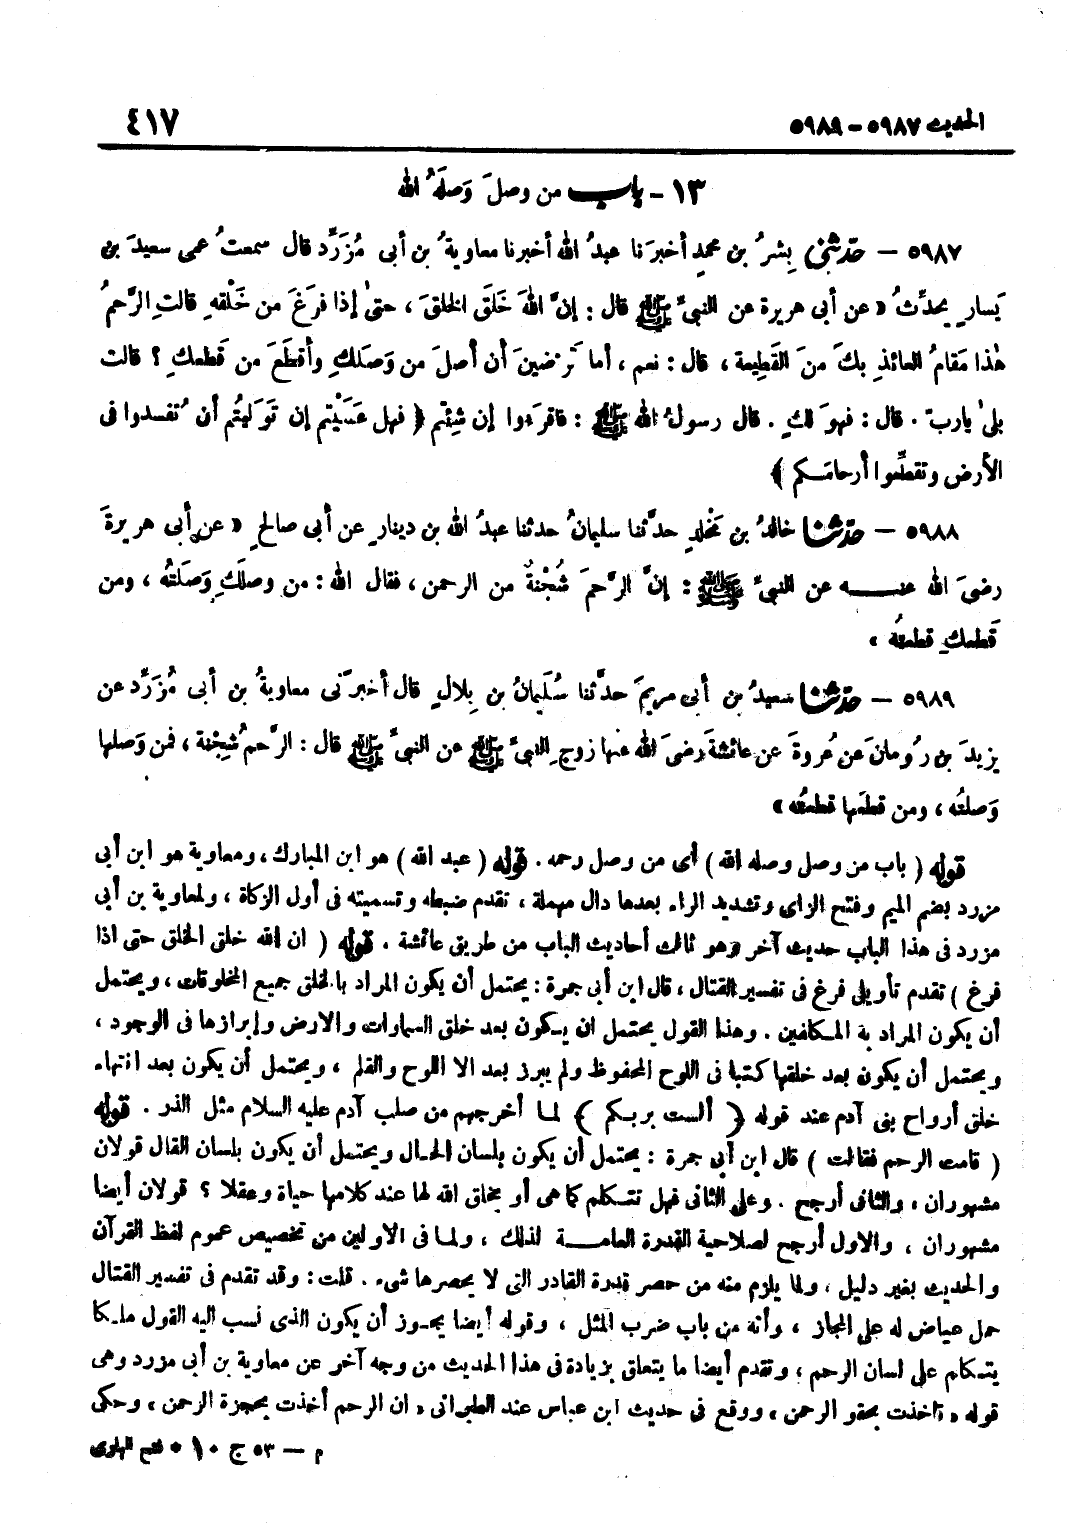 الحديث ٥٩٨٧ – ٥٩٨٩ ٤١٧
١٣ – باب من وصلَ وَصلَهُ الله
٥٩٨٧ – حدّثني بِشرُ بن محمدٍ أخبرَنا عبدُ الله أخبرنا معاويةُ بن أبى مُزَرِّد قال سمعتُ عمى سعيدَ بن
يَسارٍ يحدِّثُ « عن أبى هريرة عن النبىِّ ﷺ قال : إنَّ اللهَ خَلَق الخلقَ ، حتىٰ إذا فرَغَ من خَلْقهِ قالتِ الرَّحمُ
هٰذا مَقامُ العائذِ بكَ منَ القَطِيعة ، قال : نعم ، أما تَرضَينَ أن أصلَ من وَصَلكِ وأقطَعَ من قَطعكِ ؟ قالت
بلىٰ ياربّ . قال : فهوَ لكِ . قال رسولُ الله ﷺ : فاقرَءوا إن شِئتم ﴿ فهل عَسَيْتم إن تَوَليتُم أن تُفسدوا فى
الأرض وتقطِّعوا أرحامَـكم ﴾
٥٩٨٨ – حدّثنا خالدُ بن مَخْلدٍ حدَّثنا سليمانُ حدثنا عبدُ الله بن دينارٍ عن أبى صالحٍ « عن أبى هريرةَ
رضىَ الله عنـــه عن النبىِّ ﷺ : إنَّ الرَّحمَ شُجْنةٌ من الرحمن ، فقال الله : من وصلَكِ وَصَلتُه ، ومن
قَطعكِ قطعتُه »
٥٩٨٩ – حدّثنا سعيدُ بن أبى مريمَ حدَّثنا سُلَيمانُ بن بِلالٍ قال أخبرَنى معاويةُ بن أبى مُزَرِّد عن
يزيدَ بن رُومانَ عن عُروةَ عن عائشةَ رضىَ الله عنها زوجِ النبىِّ ﷺ عن النبىِّ ﷺ قال : الرَّحمُ شُجْنة ، فمن وَصلها
وَصلتُه ، ومن قطعَها قطعتُه »
قوله ( باب من وصل وصله الله ) أى من وصل رحمه . قوله ( عبد الله ) هو ابن المبارك ، ومعاوية هو ابن أبى
مزرد بضم الميم وفتح الزاى وتشديد الراء بعدها دال مهملة ، تقدم ضبطه وتسميته فى أول الزكاة ، ولمعاوية بن أبى
مزرد فى هذا الباب حديث آخر وهو ثالث أحاديث الباب من طريق عائشة . قوله ( ان الله خلق الخلق حتى اذا
فرغ ) تقدم تأويل فرغ فى تفسير القتال ، قال ابن أبى جمرة : يحتمل أن يكون المراد بالخلق جميع المخلوقات ، ويحتمل
أن يكون المراد به المـكلفين . وهذا القول يحتمل ان يـكون بعد خلق السماوات والارض وإبرازها فى الوجود ،
ويحتمل أن يكون بعد خلقها كتبا فى اللوح المحفوظ ولم يبرز بعد الا اللوح والقلم ، ويحتمل أن يكون بعد انتهاء
خلق أرواح بنى آدم عند قوله ﴿ ألست بربـكم ﴾ لمـا أخرجهم من صلب آدم عليه السلام مثل الذر . قوله
( قامت الرحم فقالت ) قال ابن أبى جمرة : يحتمل أن يكون بلسان الحـال ويحتمل أن يكون بلسان القال قولان
مشهوران ، والثانى أرجح . وعلى الثانى فهل تتـكلم كما هى أو يخلق الله لها عند كلامها حياة وعقلا ؟ قولان أيضا
مشهوران ، والاول أرجح لصلاحية القدرة العامـــة لذلك ، ولمـا فى الاولين من تخصيص عموم لفظ القرآن
والحديث بغير دليل ، ولما يلزم منه من حصر قدرة القادر التى لا يحصرها شىء . قلت : وقد تقدم فى تفسير القتال
حمل عياض له على المجاز ، وأنه من باب ضرب المثل ، وقوله أيضا يجـوز أن يكون الذى نسب اليه القول ملـكا
يتـكلم على لسان الرحم ، وتقدم أيضا ما يتعلق بزيادة فى هذا الحديث من وجه آخر عن معاوية بن أبى مزرد وهى
قوله « فأخذت بحقو الرحمن ، ووقع فى حديث ابن عباس عند الطبرانى « ان الرحم أخذت بحجزة الرحمن ، وحكى
م — ٥٣ ج ١٠ * فتح البارى